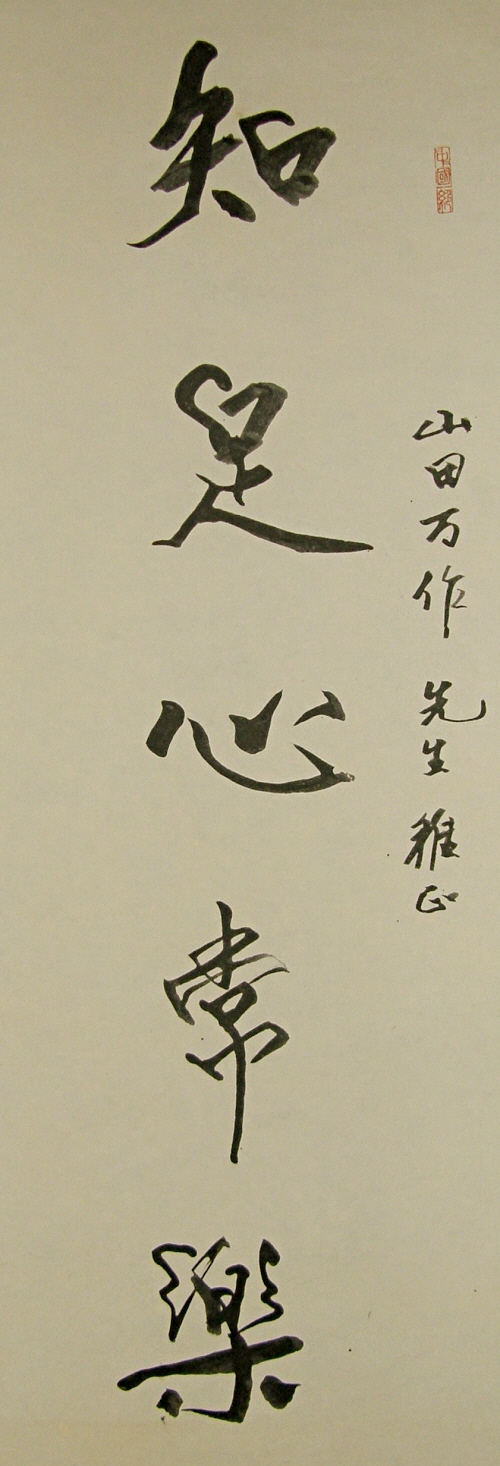 山田万作先生雅正
知足心常樂